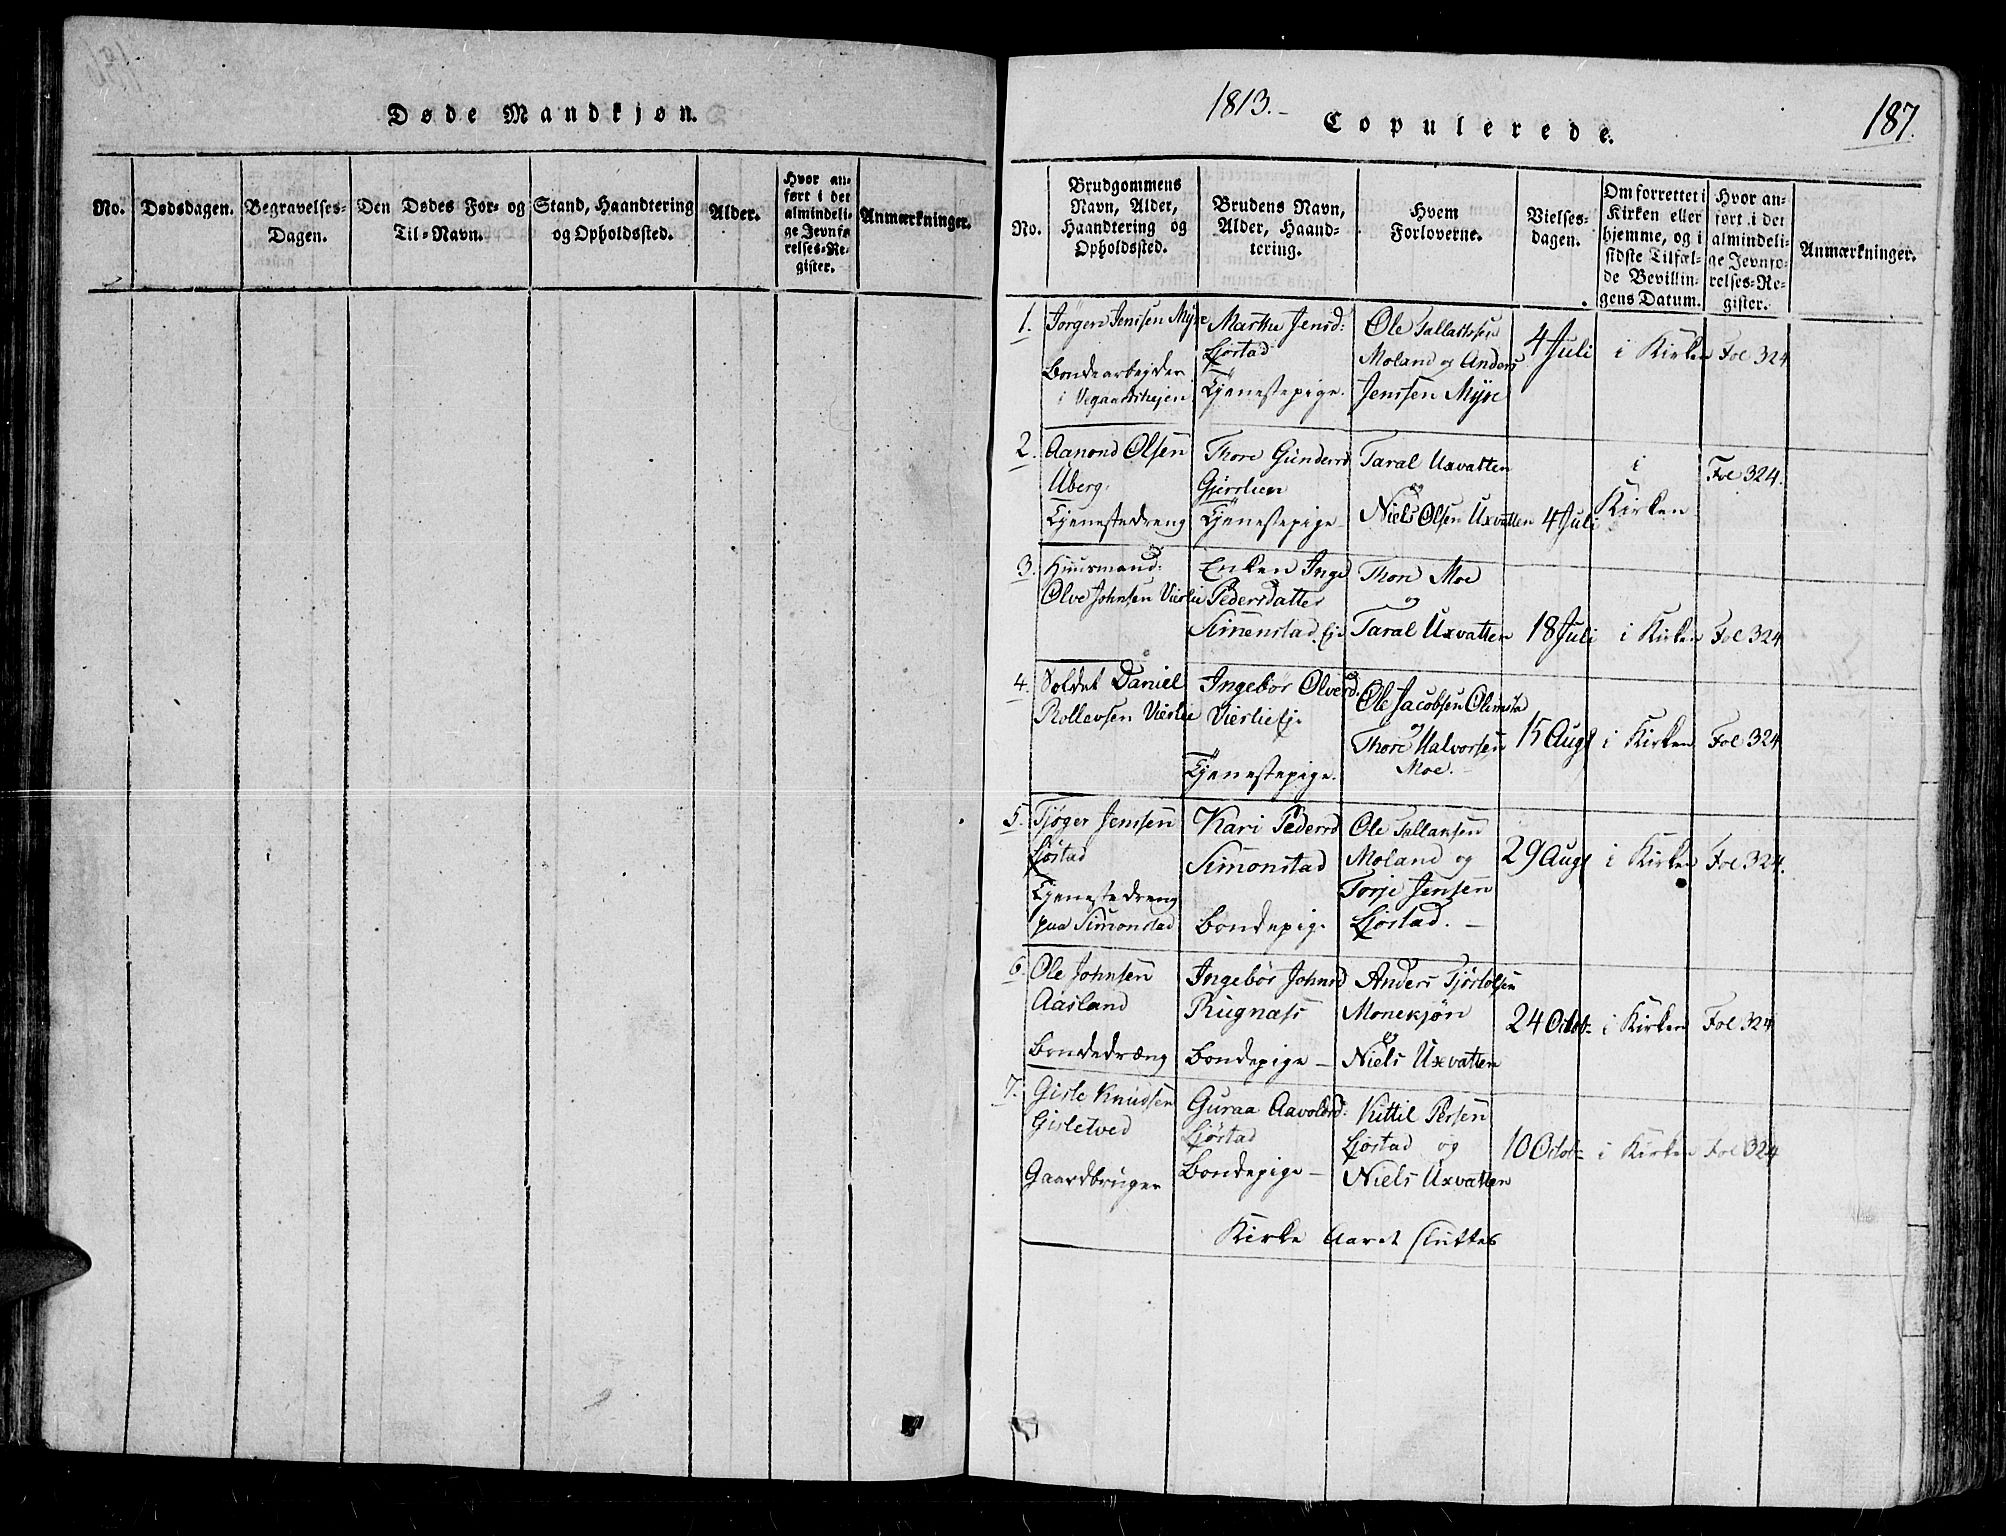 Døde Mandkjøn.
No.
Dødsdagen.
Begravelses-
Dagen.
Den Dødes For- og
Til-Navn.
Stand, Haandtering
og Opholdssted.
Alder.
Hvor an-
ført i det
almindeli-
ge Jevnfø-
relses-Re-
gister.
Anmærkninger.
1813.-
Copulerede.
187.
No.
Brudgommens
Navn, Alder,
Haandtering og
Opholdssted.
Brudens Navn,
Alder, Haand-
tering.
Hvem
Forloverne.
Vielses-
dagen.
Om forrettet i
Kirken eller
hjemme, og i
sidste Tilfæl-
de Bevillin-
gens Datum.
Hvor an-
ført i det
almindeli-
ge Jevnfø-
relses-Re-
gister.
Anmærkninger.
1.
Jørgen Jenssen Myre
Bondearbejder
i Vegaardshejen
Marthe Jensd:
Ljøstad
Tjenestepige.
Ole Tallakssen
Moland og Anders
Jenssen Myre
4 Juli
i Kirken
Fol 324
2.
Aanond Olsen
Uberg.
Tjenestedreng
Thore Gunders
Gjerslien
Tjenestepige
Taral Uxvatten
og
Niels Olsen Uxvatten
4 Juli
i
Kirken
Fol 324.
3.
Huusmand:
Olve Johnsen Vierlie
Enken Inge
Pedersdatter
Simenstad Ej.
Thore Moe
og
Taral Uxvatten
18 Juli
i Kirken
Fol 324
4.
Soldat Daniel
Rollevsen Vierlie
Ingebør Olversd
Vierlie Ej.
Tjenestepige.
Ole Jacobsen Olimsta
og
Thore Halvorsen
Moe.-
15 Augt
i Kirken
Fol 324
5.
Tjøger Jenssen
Ljøstad
Tjenestedreng
paa Simonstad
Kari Pedersd
Simonstad
Bondepig.
Ole Tallaksen
Moland og
Torje Jensen
Ljøstad. -
29 Augt
i Kirken
Fol 324.
6.
Ole Johnsen
Aasland
Bondedræng
Ingebør Johnsd
Rugnæss
Bondepige -
Anders Tjøstolsen
Monekjøn
og
Niels Uxvatten
24 Octob-
i Kirken
Fol 324
7.
Gisle Knudsen
Gisletved
Gaardbruger
Guraa Aavoldsd:
Ljøstad
Bondepige -
Kittil Persen
Ljøstad og
Niels Uxvatten
10 Octob-
i Kirken
Fol 324
Kirke Aaret sluttes